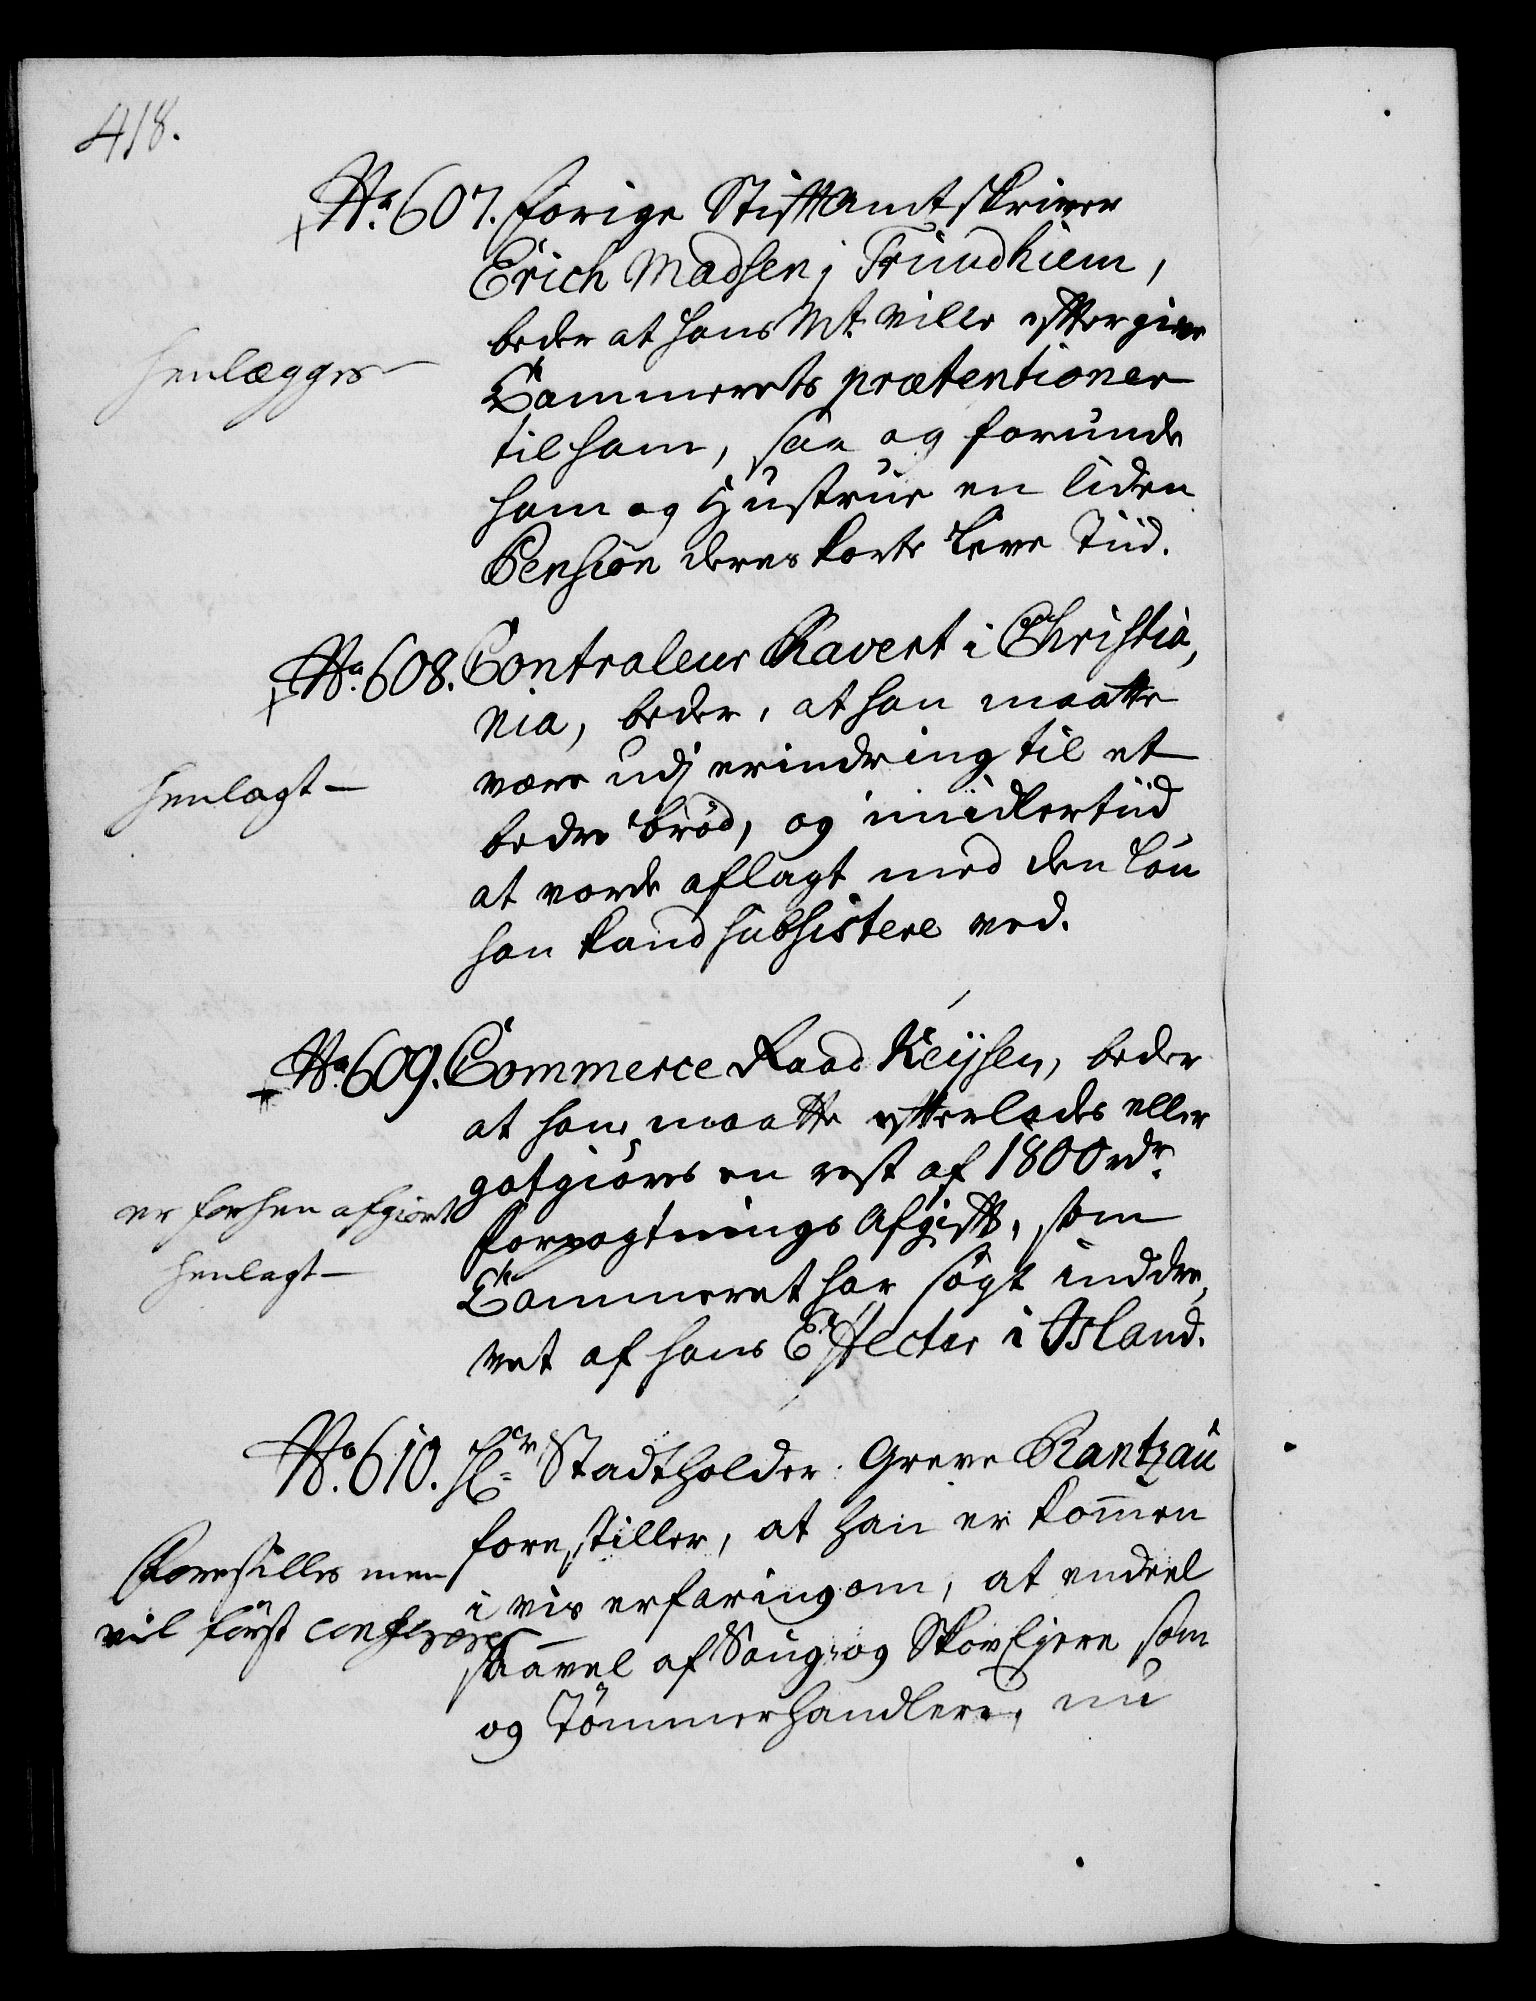 418.
No. 607. Forige Stiftamtskriver
Erich Madsen i Trundhiem,
beder at Hans Mt. ville eftergive
henlægges
Cammerets prætentioner
til ham, saa og forunde
ham og Hustrue en liden
Pension deres korte Leve Tiid.
No. 608. Controleur Ravert i Christia,
nia, beder, at han maatte
være udj erindring til et
henlagt
bedre brød, og imidlertiid
at vorde aflagt med den Løn
han kand subsistere ved.
No. 609. Commerce Raad Keysen, beder
at ham maatte efterlades eller
godgiøres en rest af 1800 rdr.
er forhen afgiort
Forpagtnings Afgift, som
henlagt
Cammeret har søgt inddre,
vet af hans Effecter i Island.
No. 610. Hr. Stadtholder Greve Rantzau
forestiller, at han er kommen
Forestilles men
i vis erfaring om, at endeel
vil først confereres
saavel af Saug- og Skov Ejere som
og Tømmerhandlere, nu